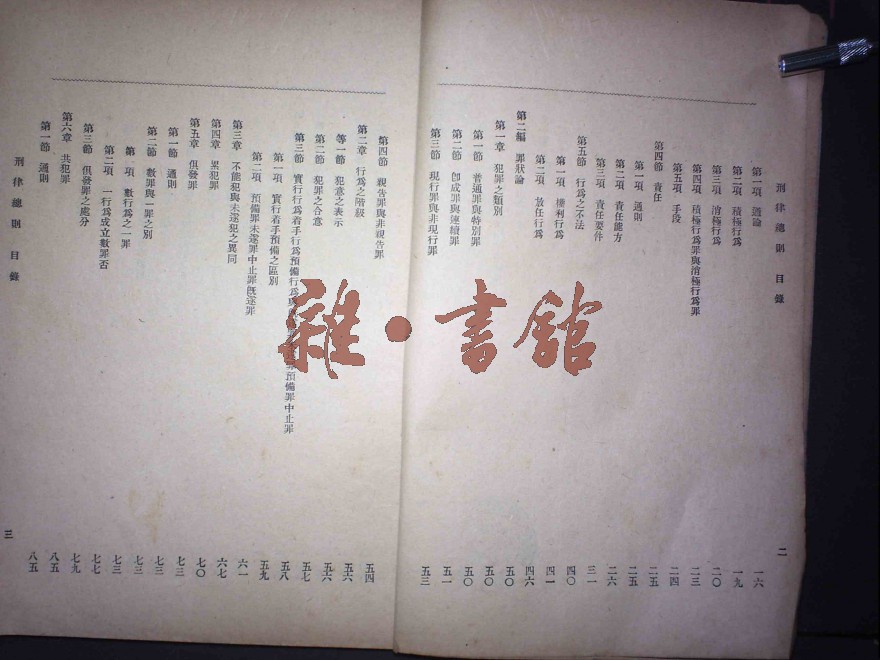 刑律總則 目錄
二
第一項 通論 一六
第二項 積極行爲 一九
第三項 消極行爲 二〇
第四項 積極行爲罪與消極行爲罪 二三
第五項 手段 二四
第四節 責任 二五
第一項 通則 二五
第二項 責任能力 二六
第三項 責任要件 三一
第五節 行爲之不法 四〇
第一項 權利行爲 四一
第二項 放任行爲 四六
第二編 罪狀論 五〇
第一章 犯罪之類別 五〇
第一節 普通罪與特別罪 五〇
第二節 卽成罪與連續罪 五一
第三節 現行罪與非現行罪 五三
第四節 親告罪與非親告罪 五四
第二章 行爲之階級 五六
第一節 犯意之表示 五六
第二節 犯罪之合意 五七
第三節 實行行爲着手行爲預備行爲與 預備罪中止罪 五八
第一項 實行着手預備之區別 五九
第二項 預備罪未遂罪中止罪旣遂罪 六一
第三章 不能犯與未遂犯之異同 六七
第四章 累犯罪 七〇
第五章 俱發罪 七三
第一節 通則 七三
第二節 數罪與一罪之別 七三
第一項 數行爲之一罪 七三
第二項 一行爲成立數罪否 七七
第三節 俱發罪之處分 七九
第六章 共犯罪 八五
第一節 通則 八五
刑律總則 目錄
三
雜·書館